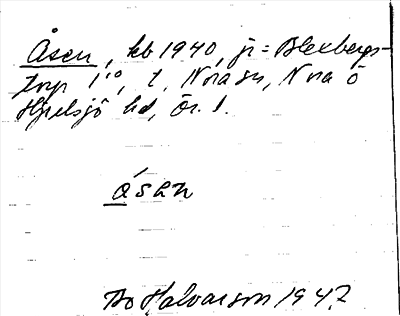 Åsen, kb 1940, jr = Blexbergs-
torp 1¹⁰, t. Nora sn, Nora o
Hjulsjö hd, Ör. l.
åsen
Bo Halvarson 1947